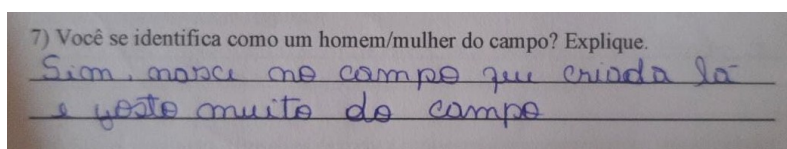 7) Você se identifica como um homem/mulher do campo? Explique.
Sim, nasci no campo fui criada lá
e gosto muito do campo